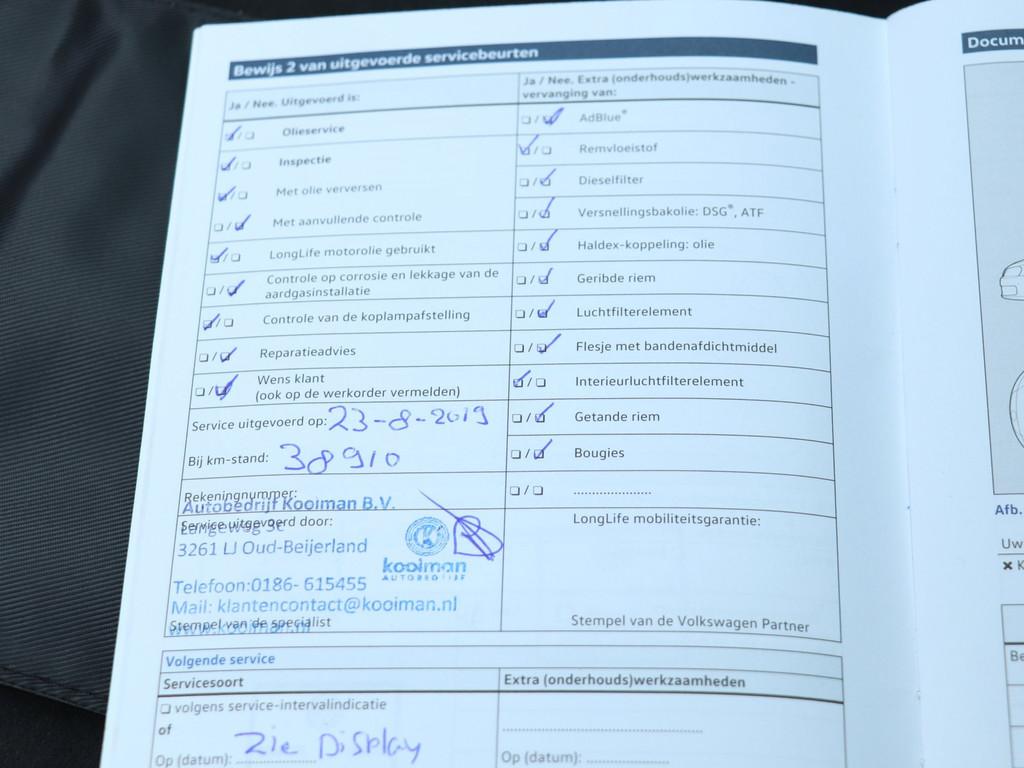 Bewijs 2 van uitgevoerde servicebeurten
Ja / Nee. Uitgevoerd is:
Olieservice
Inspectie
Met olie verversen
Met aanvullende controle
LongLife motorolie gebruikt
Controle op corrosie en lekkage van de
aardgasinstallatie
Controle van de koplampafstelling
Reparatieadvies
Wens klant
(ook op de werkorder vermelden)
Service uitgevoerd op: 23-8-2019
Bij km-stand: 38910
Rekeningnummer:
Autobedrijf Kooiman B.V.
Service uitgevoerd door:
Langeweg 3c
3261 LJ Oud-Beijerland
kooiman
AUTOBEDRIJF
Telefoon:0186- 615455
Mail: klantencontact@kooiman.nl
Stempel van de specialist
www.kooiman.nl
Ja / Nee. Extra (onderhouds)werkzaamheden -
vervanging van:
AdBlue®
Remvloeistof
Dieselfilter
Versnellingsbakolie: DSG®, ATF
Haldex-koppeling: olie
Geribde riem
Luchtfilterelement
Flesje met bandenafdichtmiddel
Interieurluchtfilterelement
Getande riem
Bougies
.....................
LongLife mobiliteitsgarantie:
Stempel van de Volkswagen Partner
Volgende service
Servicesoort
volgens service-intervalindicatie
of
Op (datum): Zie Display
Extra (onderhouds)werkzaamheden
Op (datum): .....................
Docum
Afb.
Uw
Be